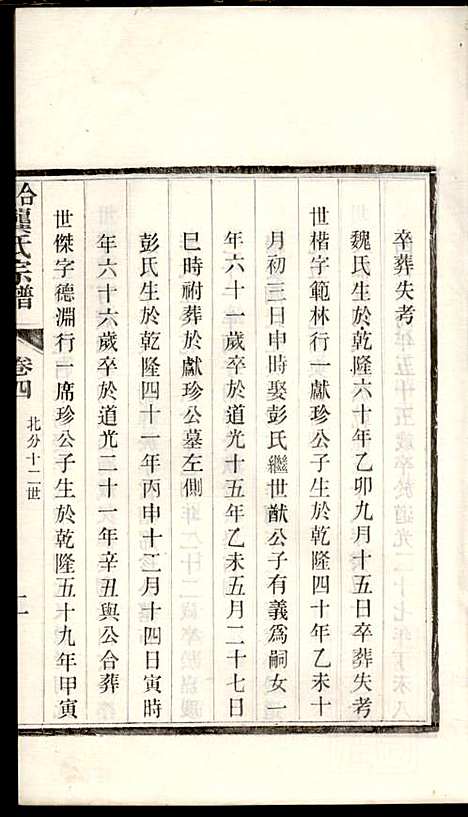 卒葬失考
魏氏生於乾隆六十年乙卯九月十五日卒葬失考
世楷字範林行一獻珍公子生於乾隆四十年乙未十
月初三日申時娶彭氏繼世猷公子有義為嗣女一
年六十一歲卒於道光十五年乙未五月二十七日
巳時祔葬於獻珍公墓左側
彭氏生於乾隆四十一年丙申十二月十四日寅時
年六十六歲卒於道光二十一年辛丑與公合葬
世傑字德淵行一席珍公子生於乾隆五十九年甲寅
龔氏宗譜
卷四
北分十二世